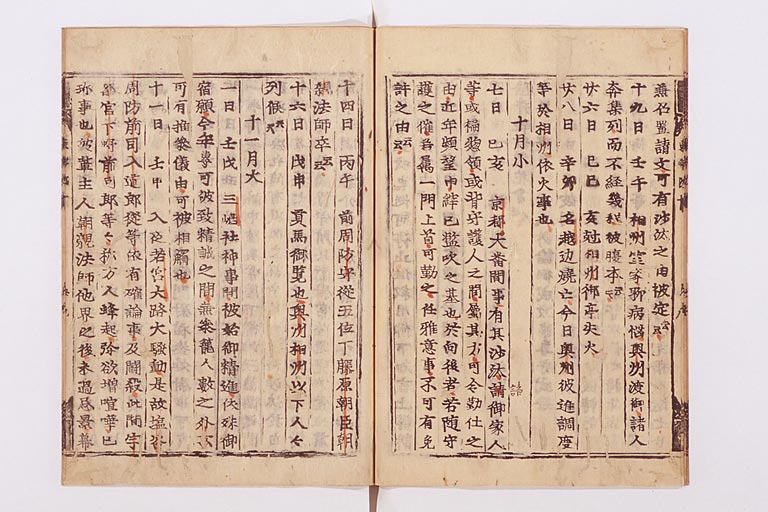 十九日 壬午 相州室家聊病悩奥州渡御諸人
奔集列而不経幾程被腹本云云
廿六日 己巳 亥刻相州御亭失火
廿八日 辛卯 名越边燒亡今日奥州被進調度
等於相州依火事也
十月小
七日 己亥 京都大番間事有其沙汰諸御家人
等或稱惣領或背守護人之間屬其方可令勤仕之
由近年頗望申緯已濫吹之基也於向後者若随守
護之催若属一門上首可勤之任雅意事不可有免
許之由云云
十四日 丙午 前周防守從五位下藤原朝臣親
親法師卒云云
十六日 戊申 貢馬御覧也奥州相州以下人々
列候云云
十一月大
一日 壬戌 三嶋社神事間被始御精進依殊御
宿願今年専可被致精誠之間無参籠人数之外不
可有推参儀由可被相觸也
十一日 壬申 入夜若宮大路大騒動是故塩谷
周防前司入道郎從等依有確論事及鬪殺此間宇
都宮下野前司郎等々稱方人蜂起弥欲増喧嘩已
珎事也彼輩主人朝親法師他界之後未過忌景幕